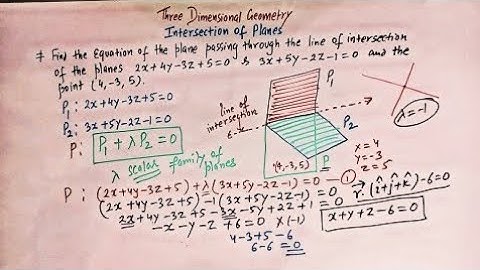 Three Dimensional Geometry
Intersection of Planes
# Find the Equation of the plane passing through the line of intersection
of the planes 2x+4y-3z+5=0 & 3x+5y-2z-1=0 and the
point (4,-3,5).
P₁: 2x+4y-3z+5=0
P₂: 3x+5y-2z-1=0
P: P₁+λP₂=0
λ scalar family of
planes
line of
intersection
P₁
P₂
(4,-3,5) P
λ=-1
x=4
y=-3
z=5
P: (2x+4y-3z+5)+λ(3x+5y-2z-1)=0 —①
(2x+4y-3z+5)-1(3x+5y-2z-1)=0
2x+4y-3z+5-3x-5y+2z+1=0
-x-y-z+6=0 ×(-1)
4-3+5-6
6-6=0
r⃗.(î+ĵ+k̂)-6=0
x+y+z-6=0